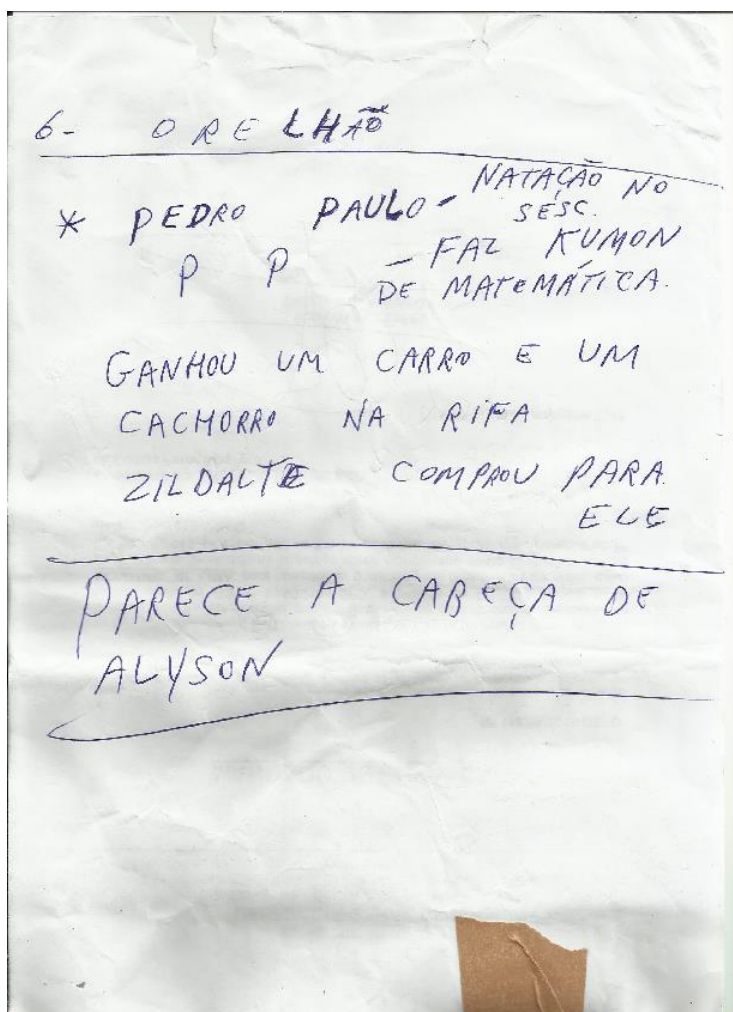 6- ORELHÃO
* PEDRO PAULO - NATAÇÃO NO
SESC.
P P - FAZ KUMON
DE MATEMÁTICA.
GANHOU UM CARRO E UM
CACHORRO NA RIFA
ZILDALTE COMPROU PARA
ELE
PARECE A CABEÇA DE
ALYSON